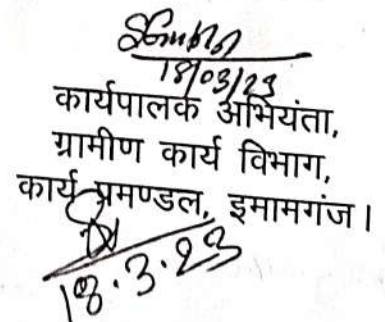 18/03/23
कार्यपालक अभियंता,
ग्रामीण कार्य विभाग,
कार्य प्रमण्डल, इमामगंज।
18.3.23